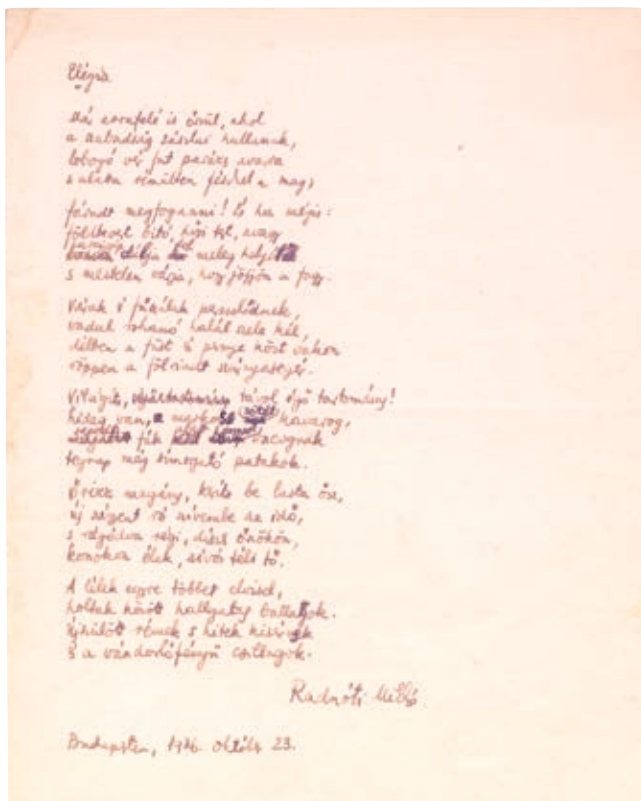 Elégia
Már arrafelé is őszül, ahol
a szabadság zászlai hullanak,
lobogó vér fut parázs avarra
s alatta rémülten fészkel a mag;
fáradt megfoganni! És ha mégis:
földbevert bitó, avagy
dúlja fel meleg helyét
s meztelen várja, hogy jöjjön a fagy.
s perzselődnek,
vadul rohanó halál szele kél,
délben a füst s pernye közt vakon
röppen a fölriadt szárnyasegér.
Világíts, távol égő tartomány!
hideg van, a sötét kavarog,
fák vacognak
tegnap még patakok.
Őrizz magány, keríts be lusta ősz,
új szégyent ró szívembe az idő,
s rágódva régi, dicső
konokon élek, szívós téli tő.
A lélek egyre többet elvisel,
holtak között hallgatag ballagok.
újszülött rémek s hitek
s a vándorlófényű csillagok.
Radnóti Miklós
Budapesten, 1936. október 23.